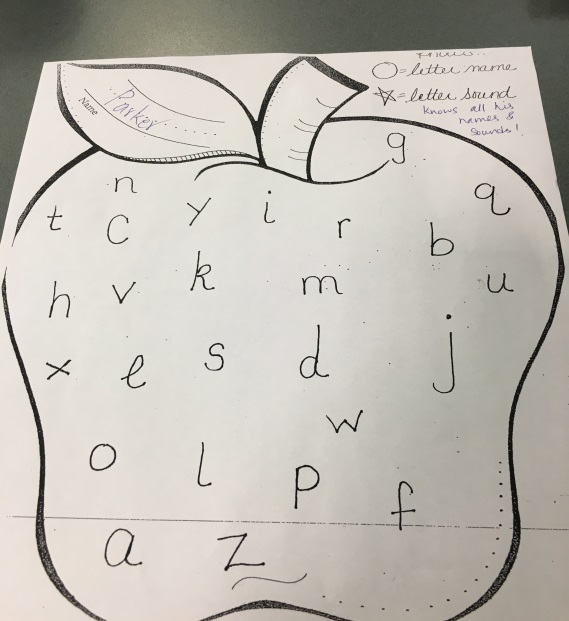 O = letter name
☆ = letter sound
knows all his
names &
sounds!
Name
Parker
g
n
q
t
c
y
i
r
b
h
v
k
m
u
x
e
s
d
j
w
o
l
p
f
a
z